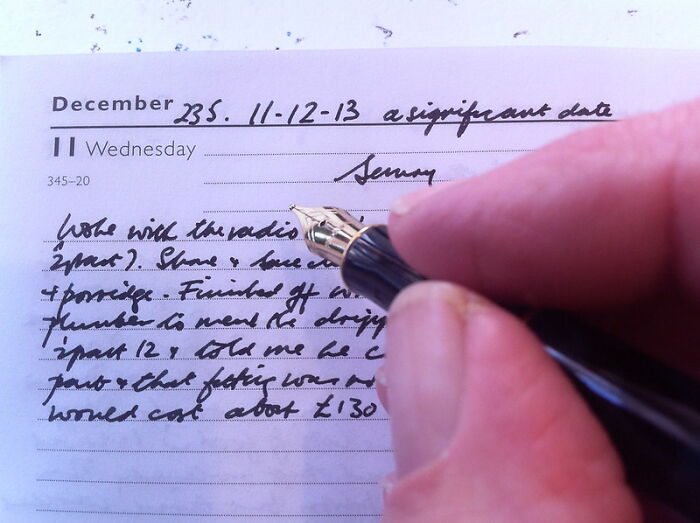 December 235. 11-12-13 a significant date
11 Wednesday
345–20
Woke with the radio
½past 7. Shave &
& porridge. Finished off
plumber to mend the dripp
½past 12 & told me he c
part & that fitting was
would cost about £130